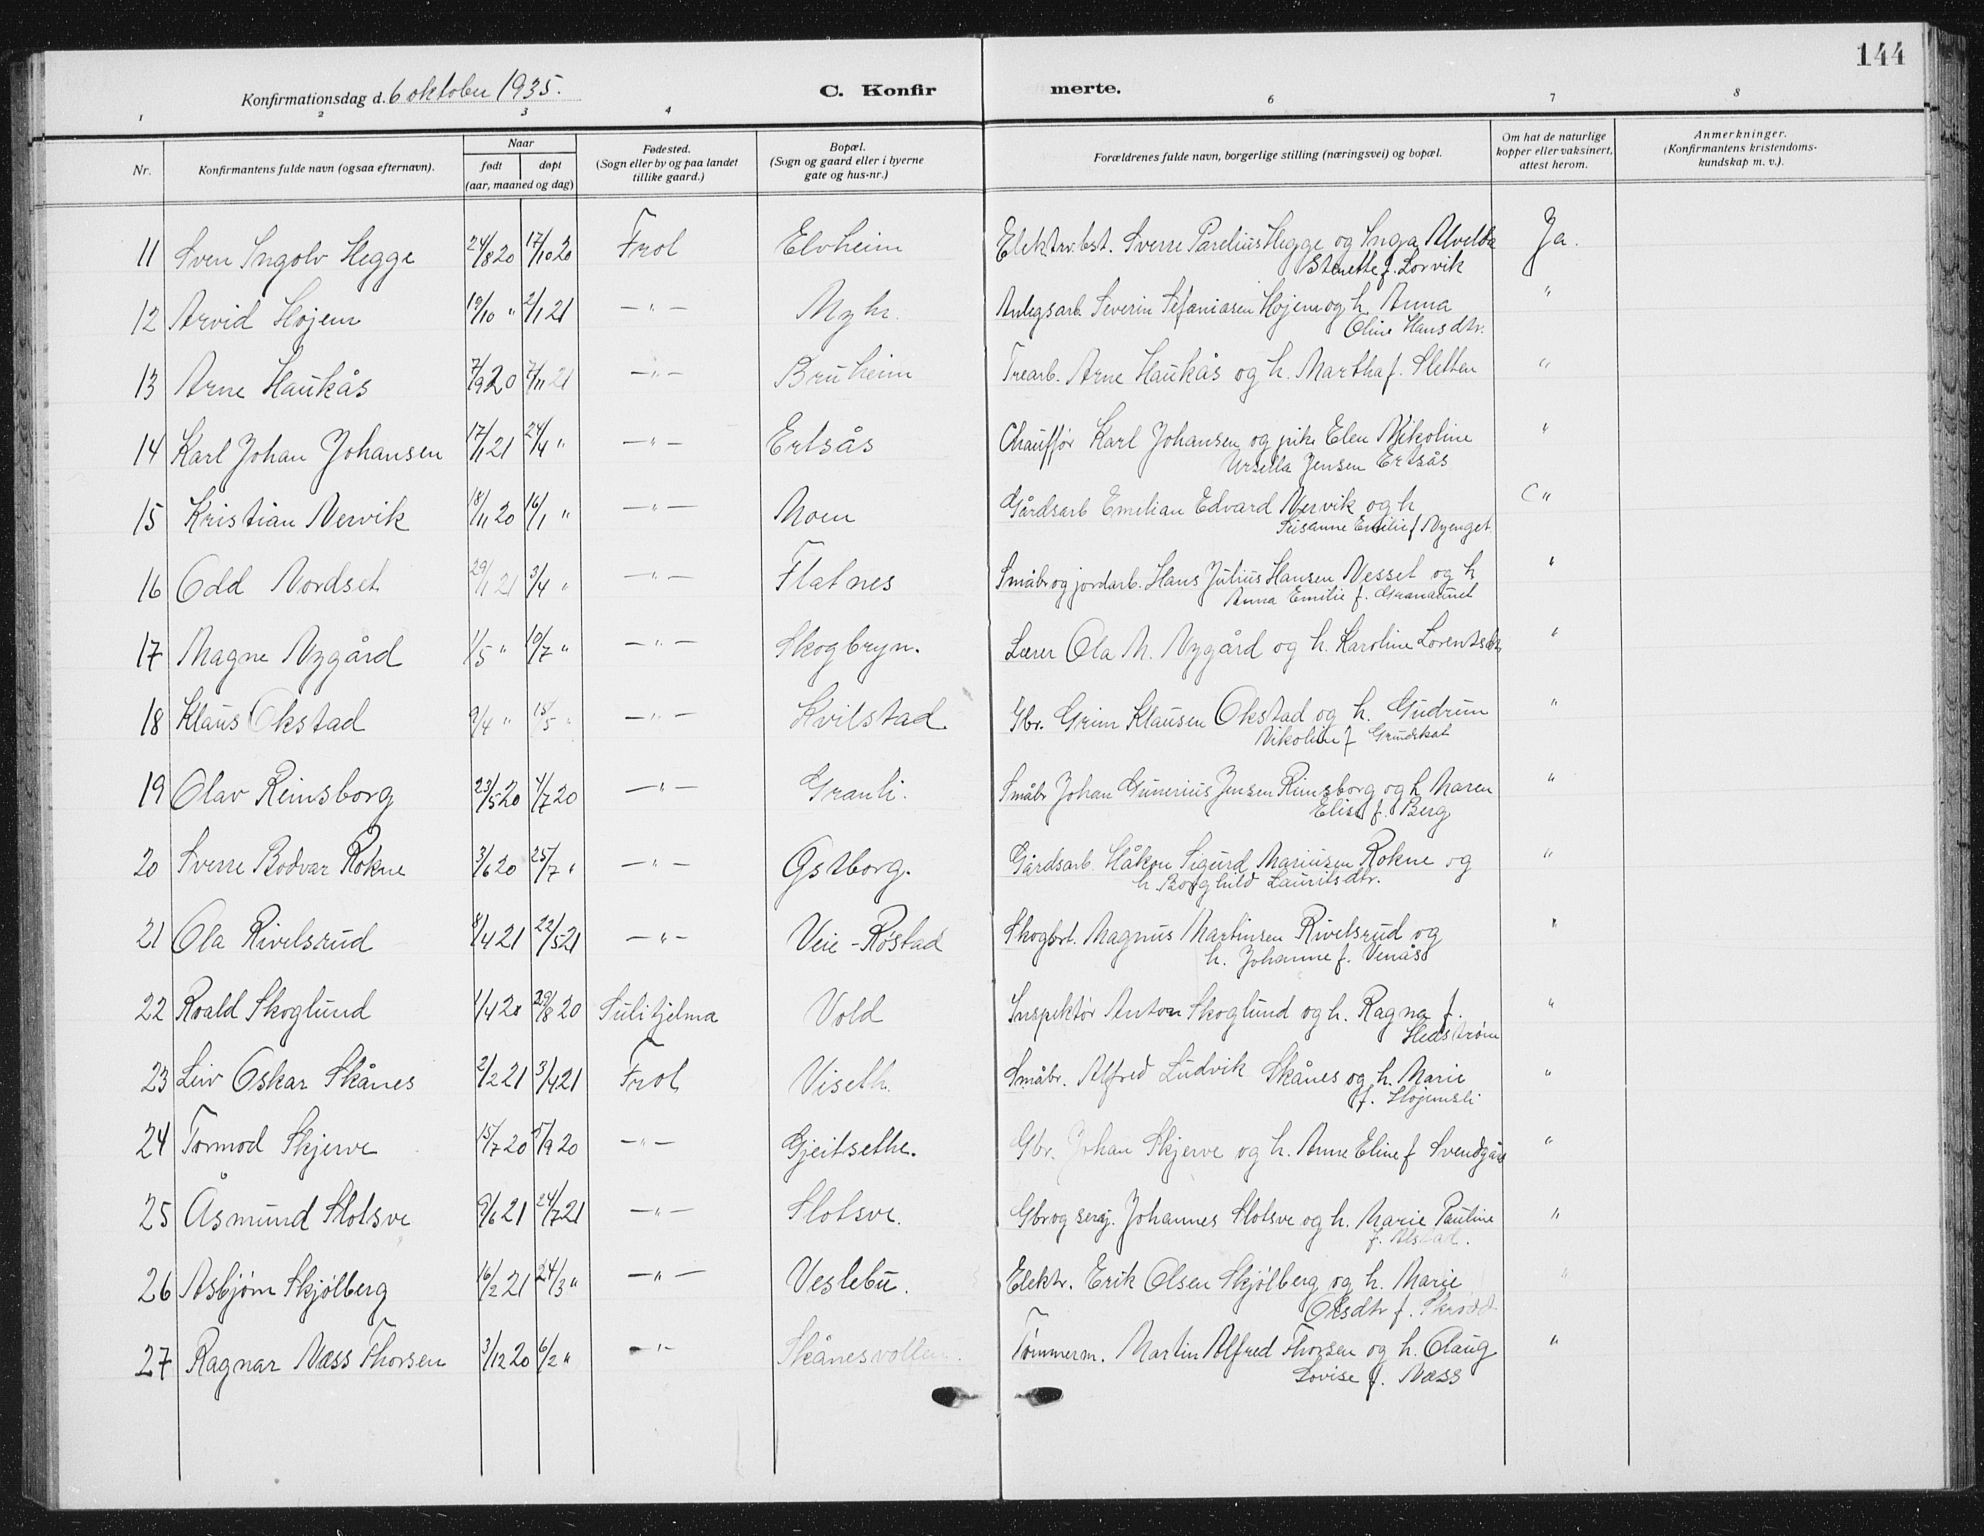 144
Konfirmationsdag d. 6 oktober 1935.
C. Konfirmerte.
1 2 3 4 6 7 8
Nr.
Konfirmantens fulde navn (ogsaa efternavn).
Naar
født døpt
(aar, maaned og dag)
Fødested.
(Sogn eller by og paa landet
tillike gaard.)
Bopæl.
(Sogn og gaard eller i byerne
gate og hus-nr.)
Forældrenes fulde navn, borgerlige stilling (næringsvei) og bopæl.
Om hat de naturlige
kopper eller vaksinert,
attest herom.
Anmerkninger.
(Konfirmantens kristendoms-
kundskap m. v.).
11 Sven Ingolv Hegge 24/8 20 17/10 20 Frol Elvheim Elektr.best. Sverre Parelius Hegge og Inga Alvelda Ja.
Stenette f. Lorvik
12 Arvid Højem 19/10 " 2/1 21 — " — Myhr. Anlegsarb. Severin Stefaniasen Højem og h. Anna "
Oline Hansdtr.
13 Arne Haukås 7/9 20 7/11 21 — " — Bruheim Trearb. Arne Haukås og h. Martha f. Sletten "
14 Karl Johan Johansen 17/1 21 24/4 " — " — Ertsås Chauffør Karl Johansen og pike Elen Nikoline "
Ursella Jensen Ertsås
15 Kristian Nervik 18/11 20 16/1 " — " — Moen Gårdsarb Emilian Edvard Nervik og h "
Susanne Emilie f Nyenget
16 Odd Nordset 29/1 21 3/4 " — " — Flatnes Småbr og jordarb. Hans Julius Hansen Nesset og h "
Anna Emilie f. Granaunet
17 Magne Nygård 1/5 " 10/7 " — " — Skogbryn. Lærer Ola M. Nygård og h. Karoline Lorentsdtr "
18 Klaus Okstad 9/4 " 15/5 " — " — Kvilstad Gbr. Grim Klausen Okstad og h. Gudrun "
Nikoline f Grundskat
19 Olav Reinsborg 23/5 20 4/7 20 — " — Granli. Småbr Johan Gunerius Jensen Rinsborg og h Maren "
Elise f. Berg
20 Sverre Bodvar Rokne 3/6 20 25/7 " — " — Gstborg. Gårdsarb. Håkon Sigurd Mariusen Rokne og "
h. Borghild Lauritsdtr.
21 Ola Rivelsrud 8/4 21 22/5 21 — " — Veie - Røstad Skogbest. Magnus Martinsen Rivelsrud og "
h. Johanne f. Venås
22 Roald Skoglund 1/4 20 29/8 20 Sulitjelma Vold Inspektør Anton Skoglund og h. Ragna f. "
Hedstrøm
23 Leiv Oskar Skånes 2/2 21 3/4 21 Frol Viseth. Småbr. Alfred Ludvik Skånes og h. Marie "
f. Højemsli
24 Tormod Skjerve 15/7 20 5/9 20 — " — Gjeitsethe. Gbr. Johan Skjerve og h. Anne Eline f Svendgård "
25 Åsmund Slotsve 9/6 21 24/7 21 — " — Slotsve. Gbr og serg. Johannes Slotsve og h. Marie Pauline "
f. Alstad.
26 Asbjørn Skjølberg 16/2 21 24/3 " — " — Veslebu. Elektr. Erik Olsen Skjølberg og h. Marie "
Olsdtr f. Skrødd.
27 Ragnar Næss Thorsen 3/12 20 6/2 " — " — Skånesvollen. Tømmerm. Martin Alfred Thorsen og h. Olaug "
Lovise f. Næss